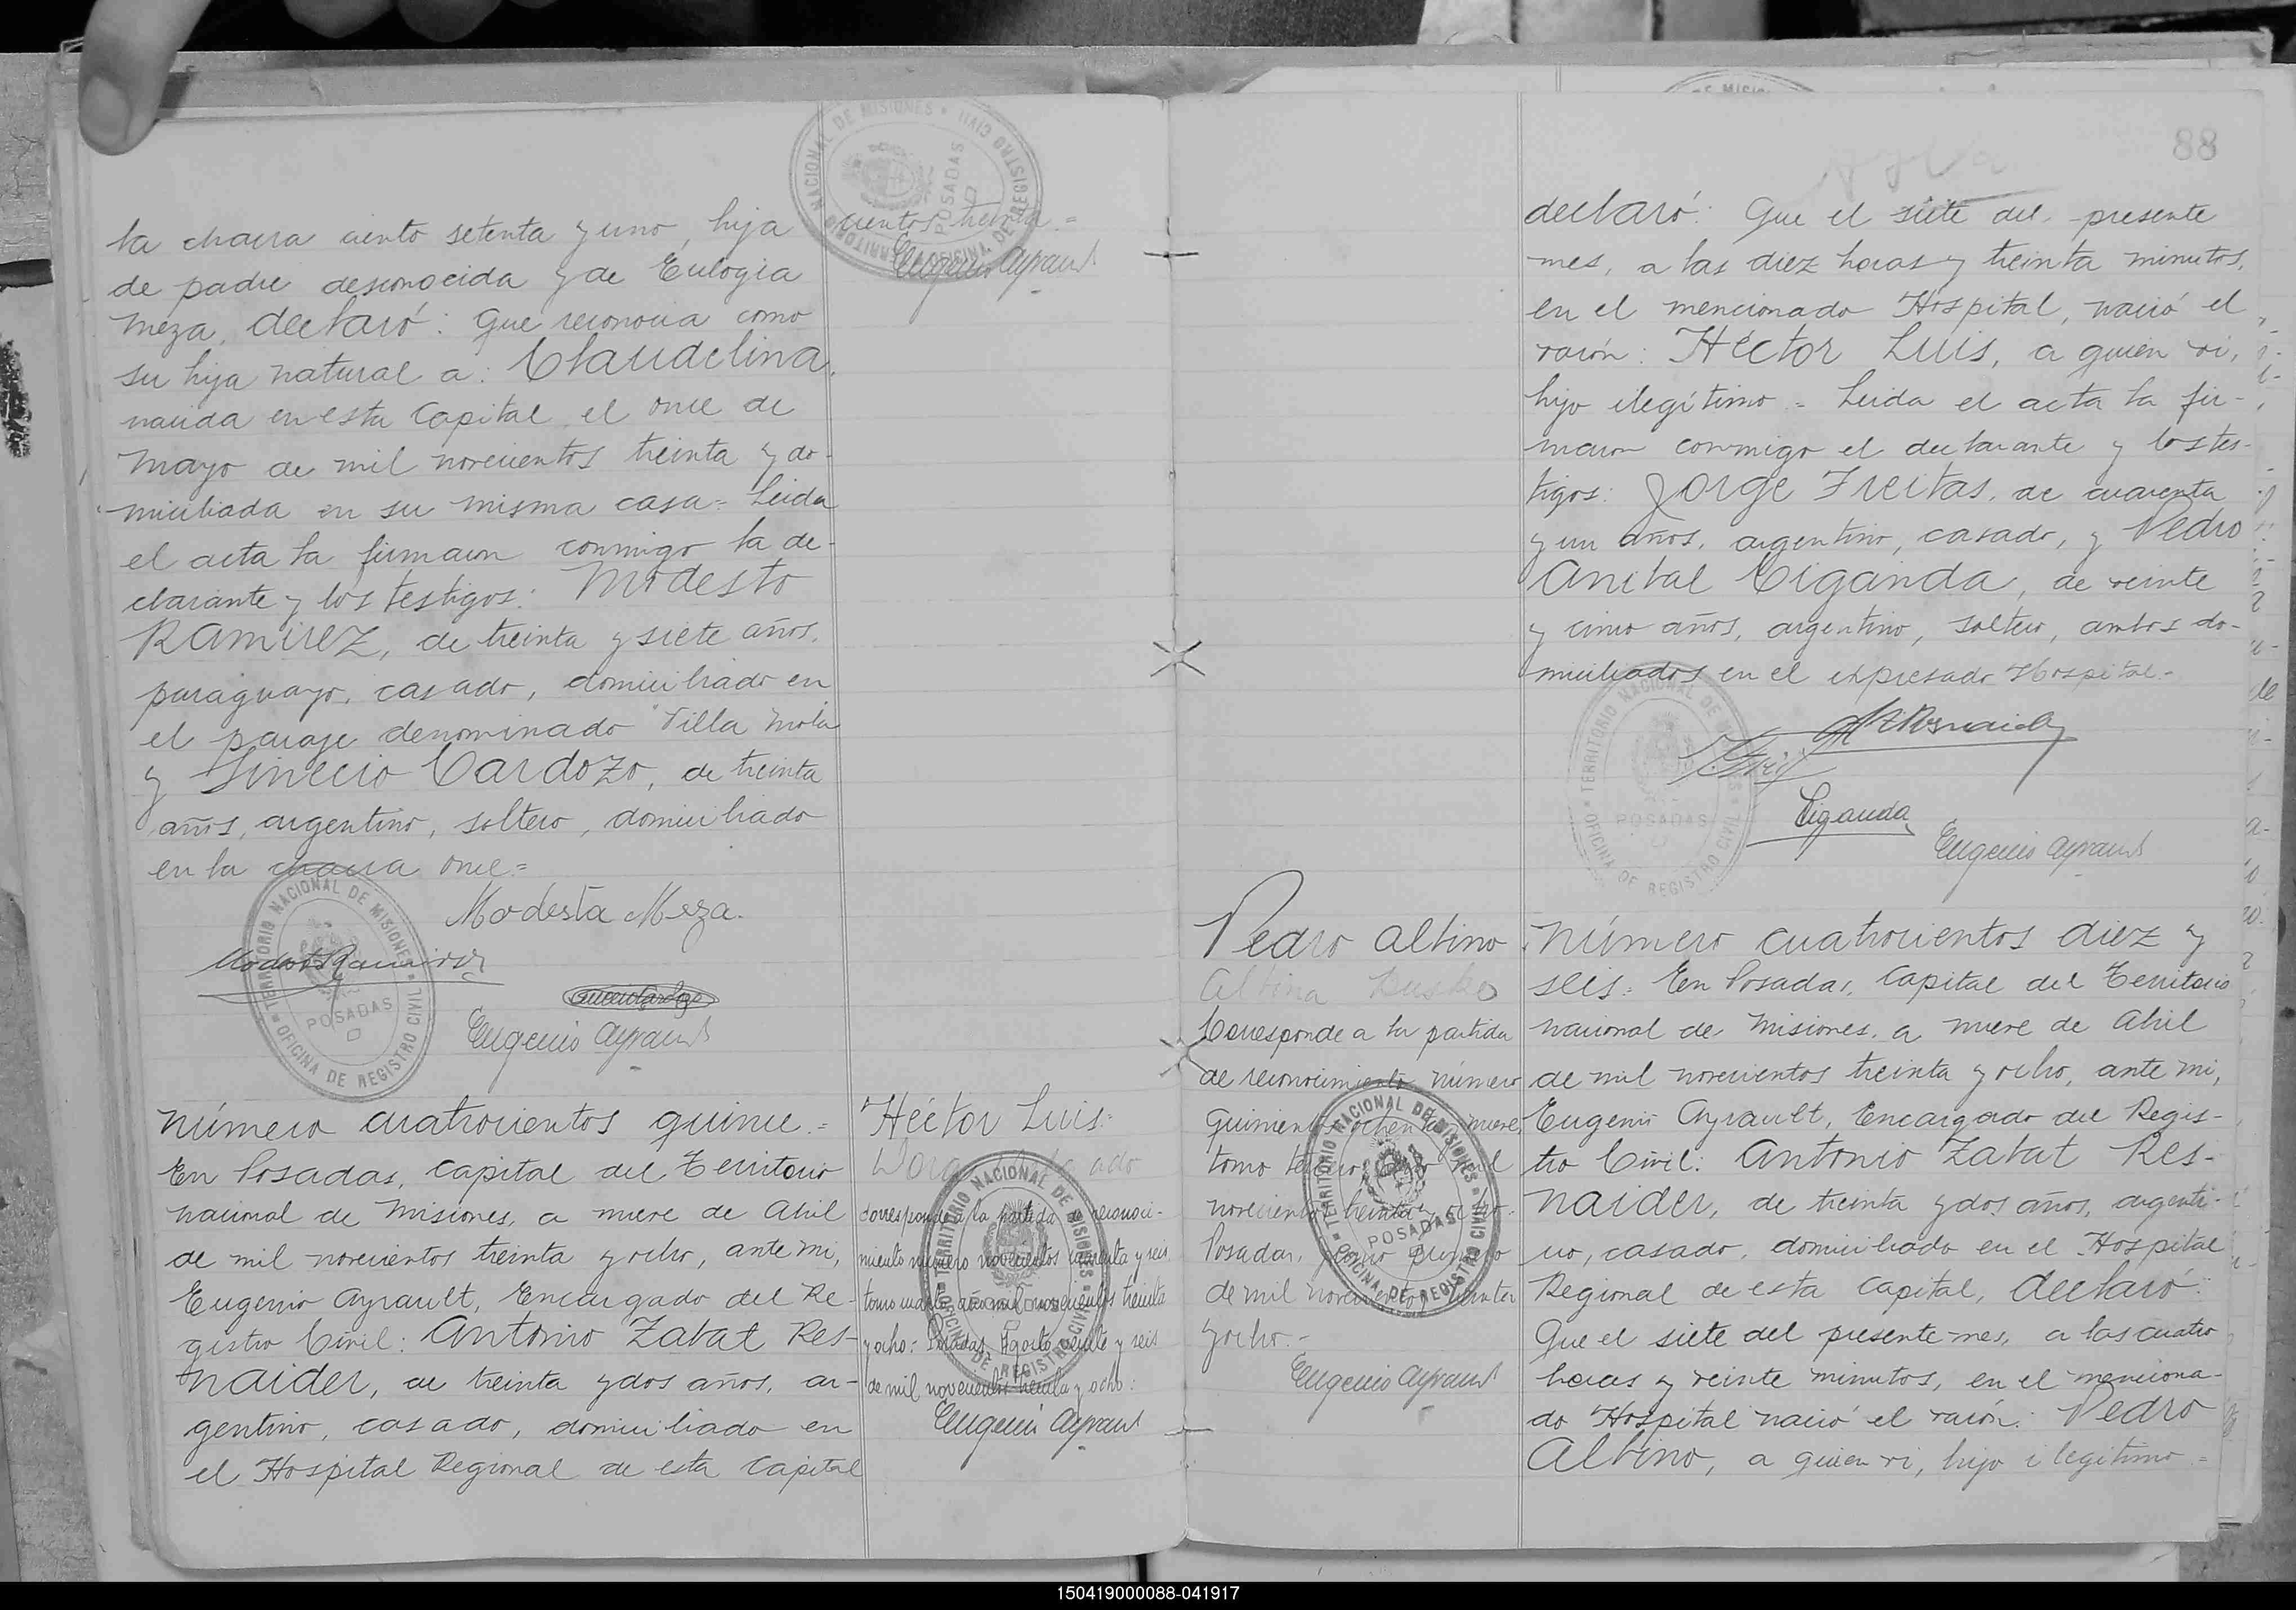 la chacra ciento setenta y uno, hija
de padre desconocida y de Eulogia
Meza, declaró: Que reconocia como
su hija natural a: Claudelina,
nacida en esta Capital, el once de
Mayo de mil novecientos treinta y do-
miciliada en su misma casa= Leida
el acta la firmaron conmigo la de-
clarante y los testigos: Modesto
Ramirez, de treinta y siete años,
paraguayo, casado, domiciliado en
el paraje denominado Villa Mola
y Sinecio Cardozo, de treinta
años, argentino, soltero, domiciliado
en la chacra once=
Modesta Meza.
Modesto Ramirez
Eugenio Ayrault
TERRITORIO NACIONAL DE MISIONES
POSADAS
OFICINA DE REGISTRO CIVIL
cientos treinta=
Eugenio Ayrault
TERRITORIO NACIONAL DE MISIONES
POSADAS
DE REGISTRO CIVIL
Número cuatrocientos quince.=
En Posadas, Capital del Territorio
nacional de Misiones, a nueve de Abril
de mil novecientos treinta y ocho, ante mi,
Eugenio Ayrault, Encargado del Re-
gistro Civil: Antonio Zabat Res-
naider, de treinta y dos años, ar-
gentino, casado, domiciliado en
el Hospital Regional de esta Capital
Héctor Luis.
corresponde a la partida reconoci-
miento número novecientos cuarenta y seis
tomo cuarto, año mil novecientos treinta
y ocho: Posadas, Agosto veinte y seis
de mil novecientos treinta y ocho:
Eugenio Ayrault
TERRITORIO NACIONAL DE MISIONES
OFICINA DE REGISTRO CIVIL
88
declaró: Que el siete del presente
mes, a las diez horas y treinta minutos,
en el mencionado Hospital, nació el
varón: Héctor Luis, a quien vi,
hijo ilegítimo= Leida el acta la fir-
maron conmigo el declarante y los tes-
tigos: Jorge Freitas, de cuarenta
y un años, argentino, casado, y Pedro
Anibal Ciganda, de veinte
y cinco años, argentino, soltero, ambos do-
miciliados en el expresado Hospital=
Ciganda
Eugenio Ayrault
TERRITORIO NACIONAL DE MISIONES
POSADAS
OFICINA DE REGISTRO CIVIL
Pedro Albino
Corresponde a la partida
de reconocimiento número
quinientos ochenta y nueve,
tomo tercero, año mil
novecientos treinta y ocho.
Posadas, Junio primero
de mil novecientos treinta
y ocho.-
Eugenio Ayrault
TERRITORIO NACIONAL DE MISIONES
POSADAS
OFICINA DE REGISTRO CIVIL
Número cuatrocientos diez y
seis= En Posadas, Capital del Territorio
nacional de Misiones, a nueve de Abril
de mil novecientos treinta y ocho, ante mi,
Eugenio Ayrault, Encargado del Regis-
tro Civil: Antonio Zabat Res-
naider, de treinta y dos años, argenti-
no, casado, domiciliado en el Hospital
Regional de esta Capital, declaró:
Que el siete del presente mes, a las cuatro
horas y veinte minutos, en el menciona-
do Hospital nació el varón: Pedro
Albino, a quien vi, hijo ilegítimo=
150419000088-041917